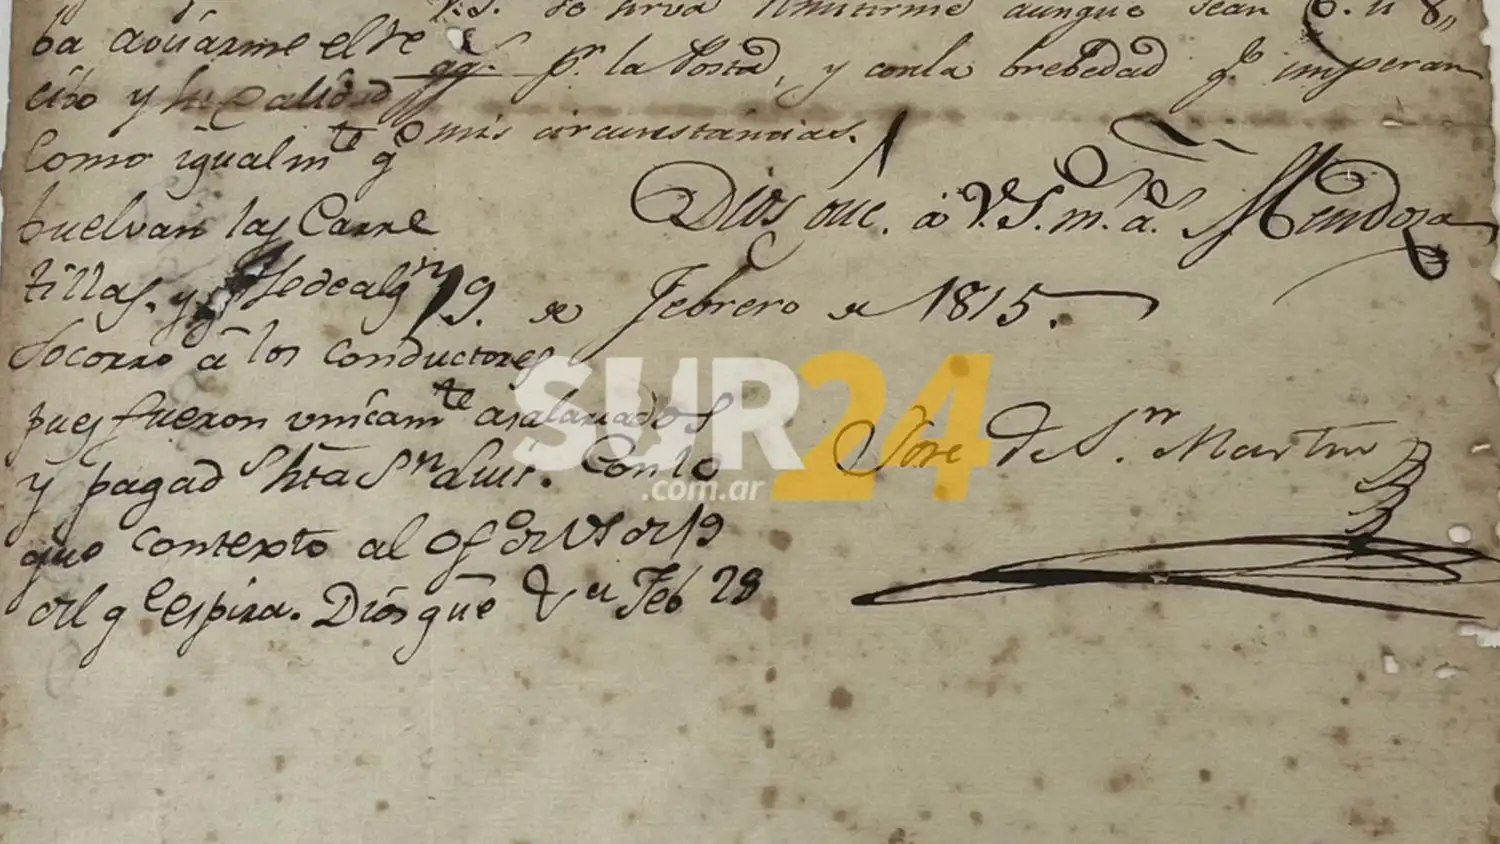 V.S. se sirva remitirme aunque sean 6. u 8,,
qq.s pr. la Posta, y con la brebedad qe. imperan
mis circunstancias.
Dios gue. a V.S. ms. as. Mendoza
19. de Febrero de 1815.
Jose de Sn. Martin
ba avisarme el re
cibo y su calidad
Como igualmte qe
buelvan las Carre
tillas. y se le de algn
Socorro á los conductores
pues fueron unicamte asalariados
y pagados hta Sn Luis. Con lo
que contexto al ofo de VS de 19
del qe espira. Dios gue &a Feb 28
SUR24
.com.ar